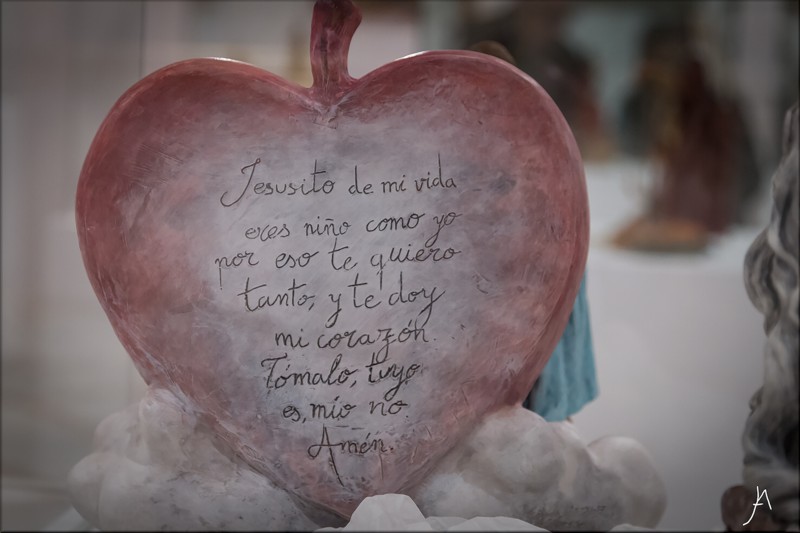 Jesusito de mi vida
eres niño como yo
por eso te quiero
tanto, y te doy
mi corazón.
Tómalo, tuyo
es, mío no.
Amén.